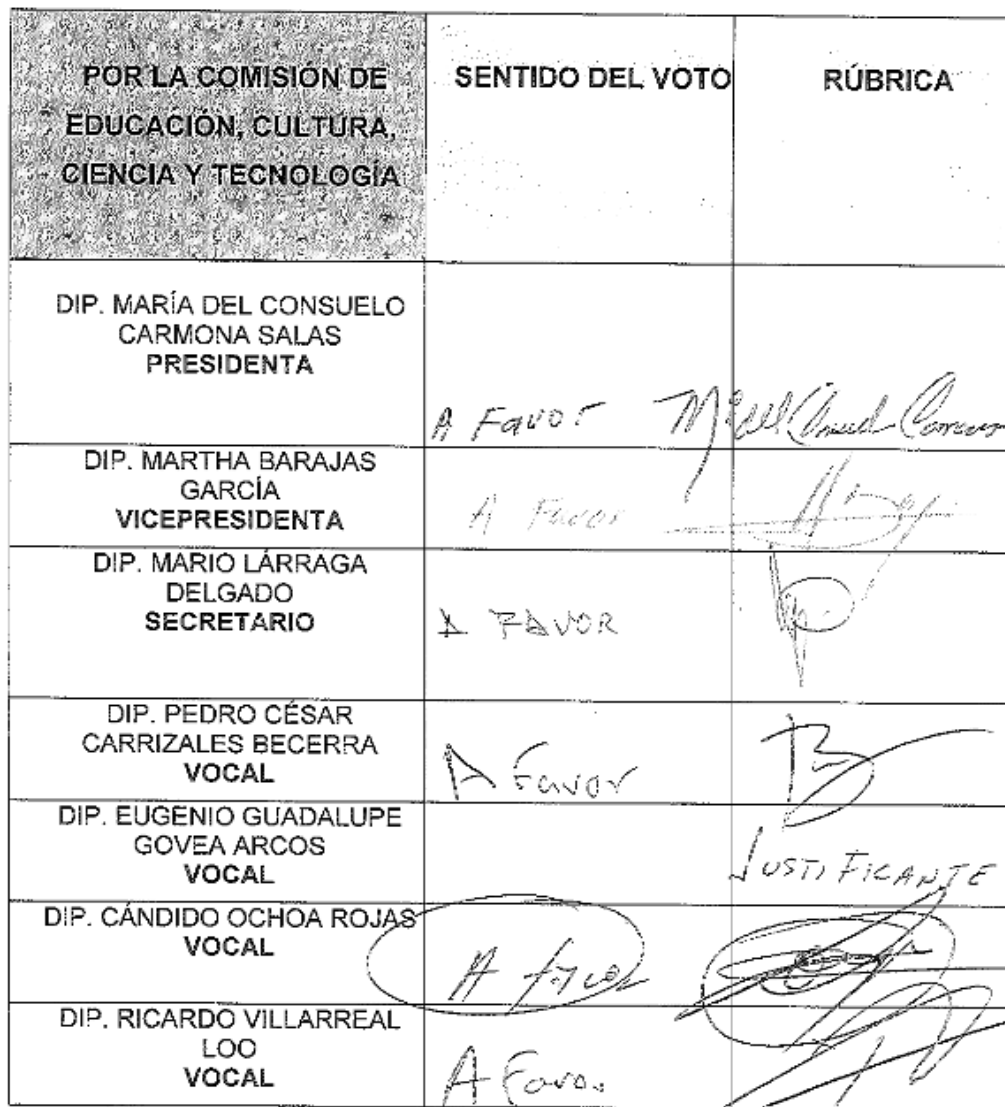 POR LA COMISIÓN DE
EDUCACIÓN, CULTURA,
CIENCIA Y TECNOLOGÍA
SENTIDO DEL VOTO
RÚBRICA
DIP. MARÍA DEL CONSUELO
CARMONA SALAS
PRESIDENTA
A Favor
DIP. MARTHA BARAJAS
GARCÍA
VICEPRESIDENTA
A Favor
DIP. MARIO LÁRRAGA
DELGADO
SECRETARIO
A FAVOR
DIP. PEDRO CÉSAR
CARRIZALES BECERRA
VOCAL
A Favor
DIP. EUGENIO GUADALUPE
GOVEA ARCOS
VOCAL
JUSTIFICANTE
DIP. CÁNDIDO OCHOA ROJAS
VOCAL
A favor
DIP. RICARDO VILLARREAL
LOO
VOCAL
A Favo.